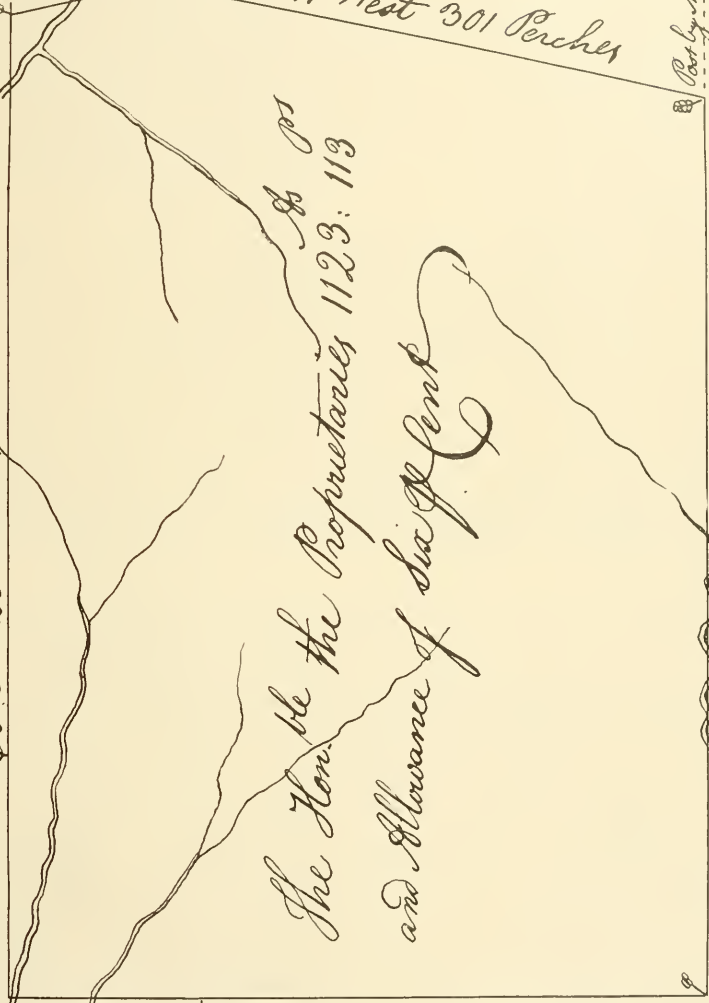 West 301 Perches
Post by
As ps
The Hon:ble the Proprietaries 1123: 113
and Allowance of Six P Cent